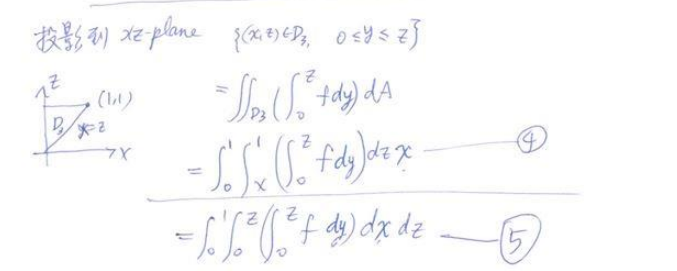 投影到 xz-plane {(x,z)∈D₃, 0≤y≤z}
z
(1,1)
D₃
x=z
x
= ∬_{D₃} (∫₀^z f dy) dA
= ∫₀¹ ∫ₓ¹ (∫₀^z f dy) dz x ④
= ∫₀¹ ∫₀^z (∫₀^z f dy) dx dz ⑤